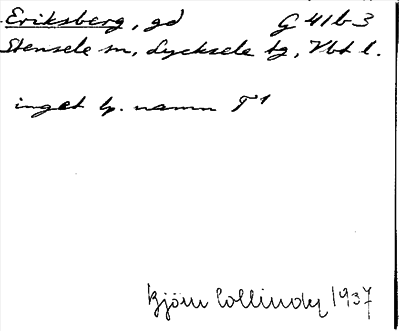 Eriksberg, gd G 41 b 3
Stensele sn, Lycksele tg, Vbt l.
inget b. namn T¹
Björn Collinder 1937